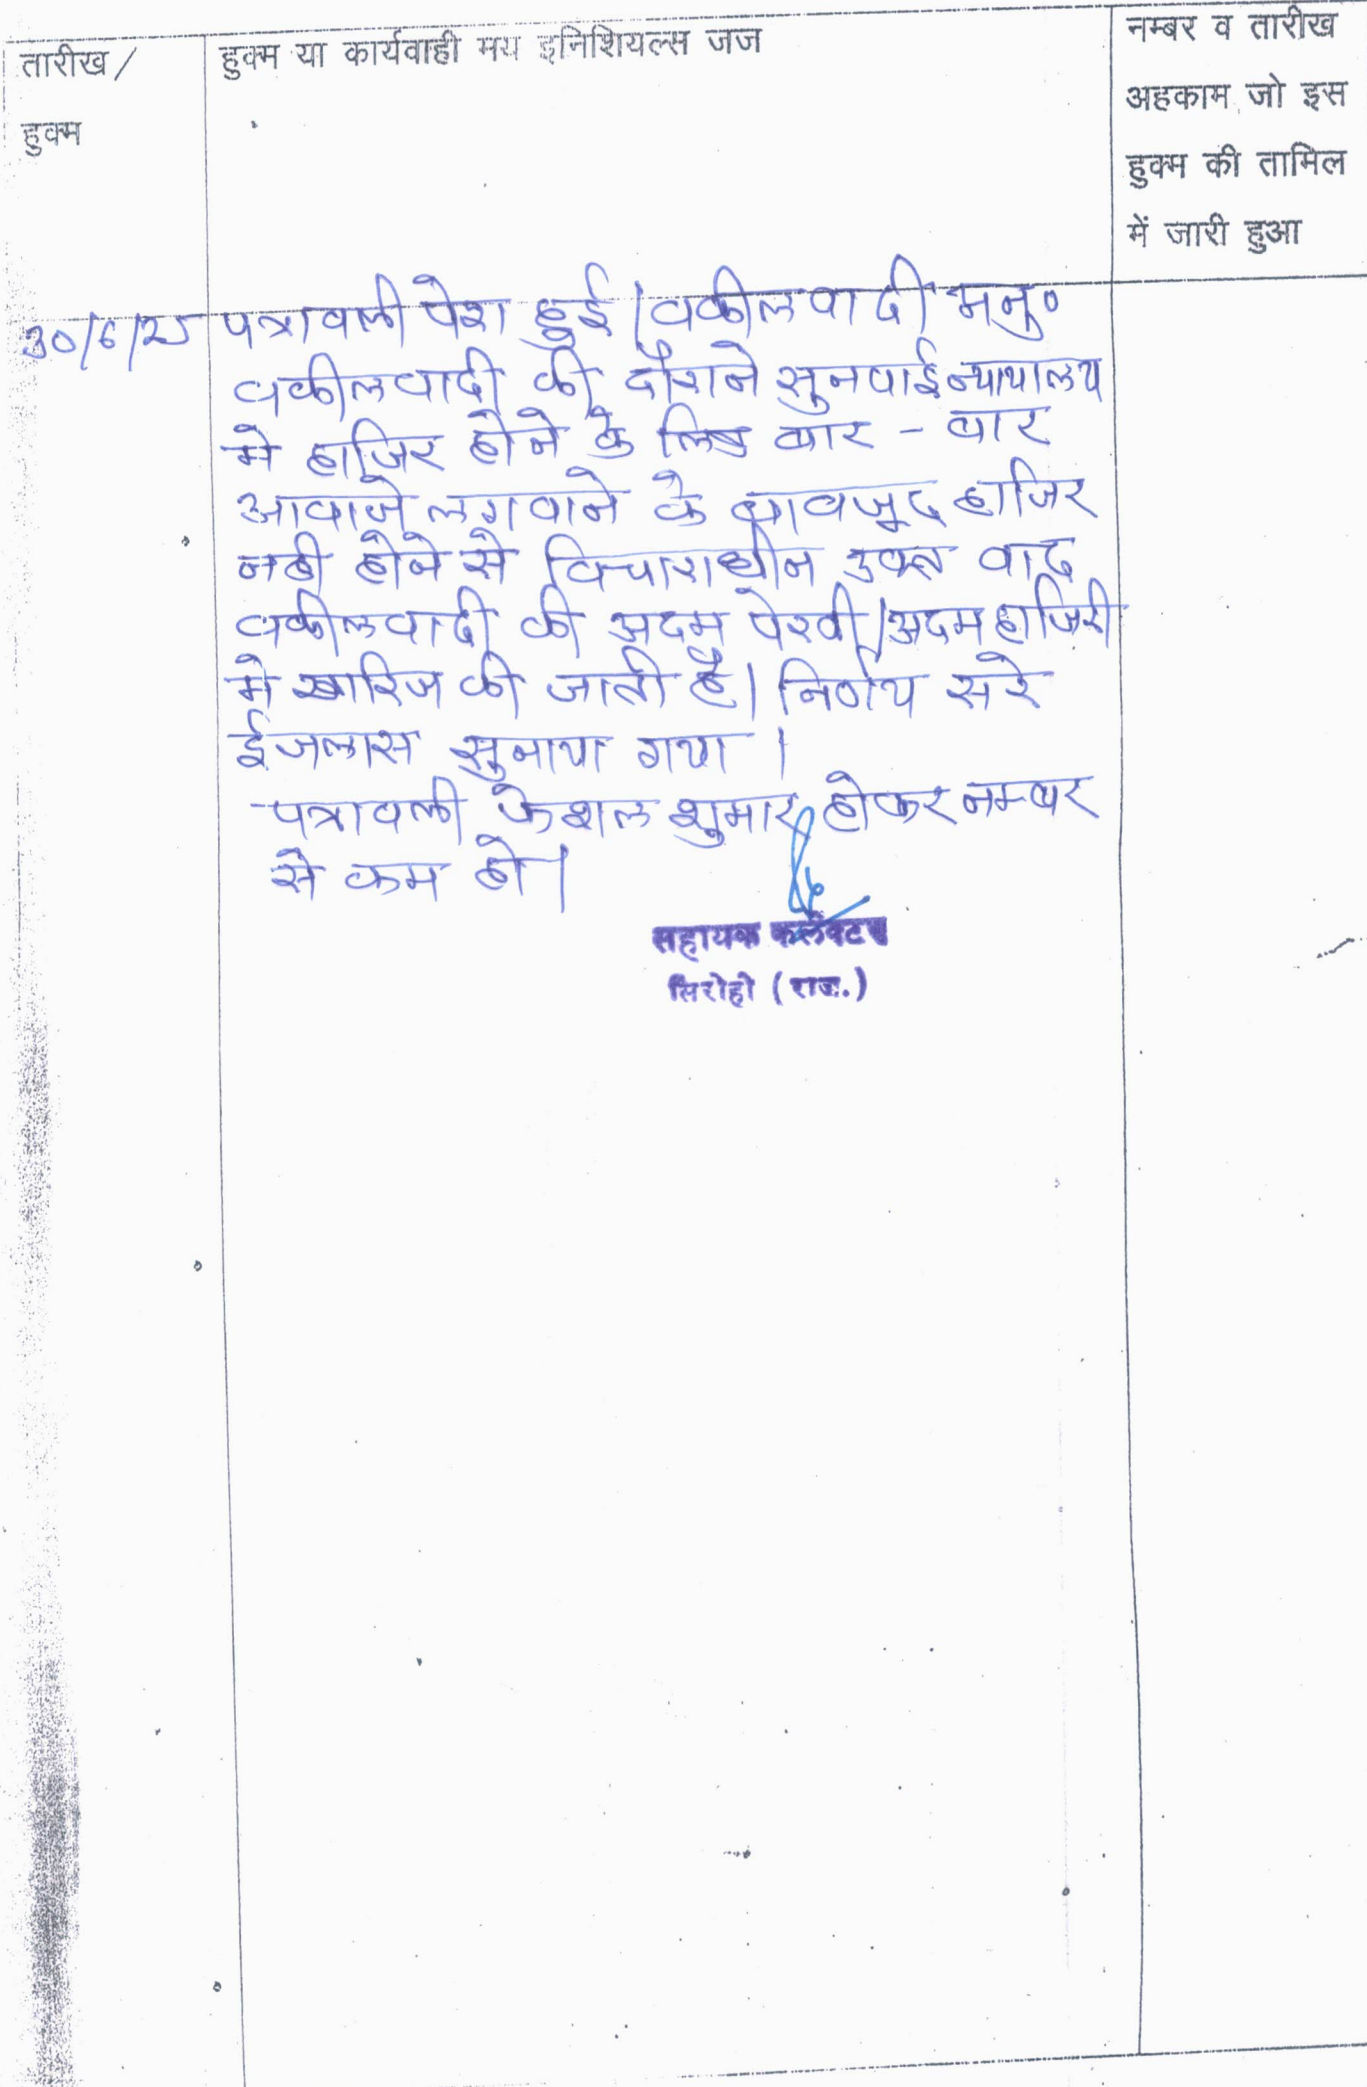 तारीख/
हुक्म
हुक्म या कार्यवाही मय इनिशियल्स जज
नम्बर व तारीख
अहकाम जो इस
हुक्म की तामिल
में जारी हुआ
30/6/25
पत्रावली पेश हुई। वकीलवादी अनु०
वकीलवादी की दौराने सुनवाई न्यायालय
मे हाजिर होने के लिए बार - बार
आवाजे लगवाने के बावजूद हाजिर
नही होने से विचाराधीन उक्त वाद
वकीलवादी की अदम पेरवी/अदम हाजिरी
मे खारिज की जाती है। निर्णय सरे
ईजलास सुनाया गया।
पत्रावली फेशल शुमार होकर नम्बर
से कम हो।
सहायक कलेक्टर
सिरोही (राज.)